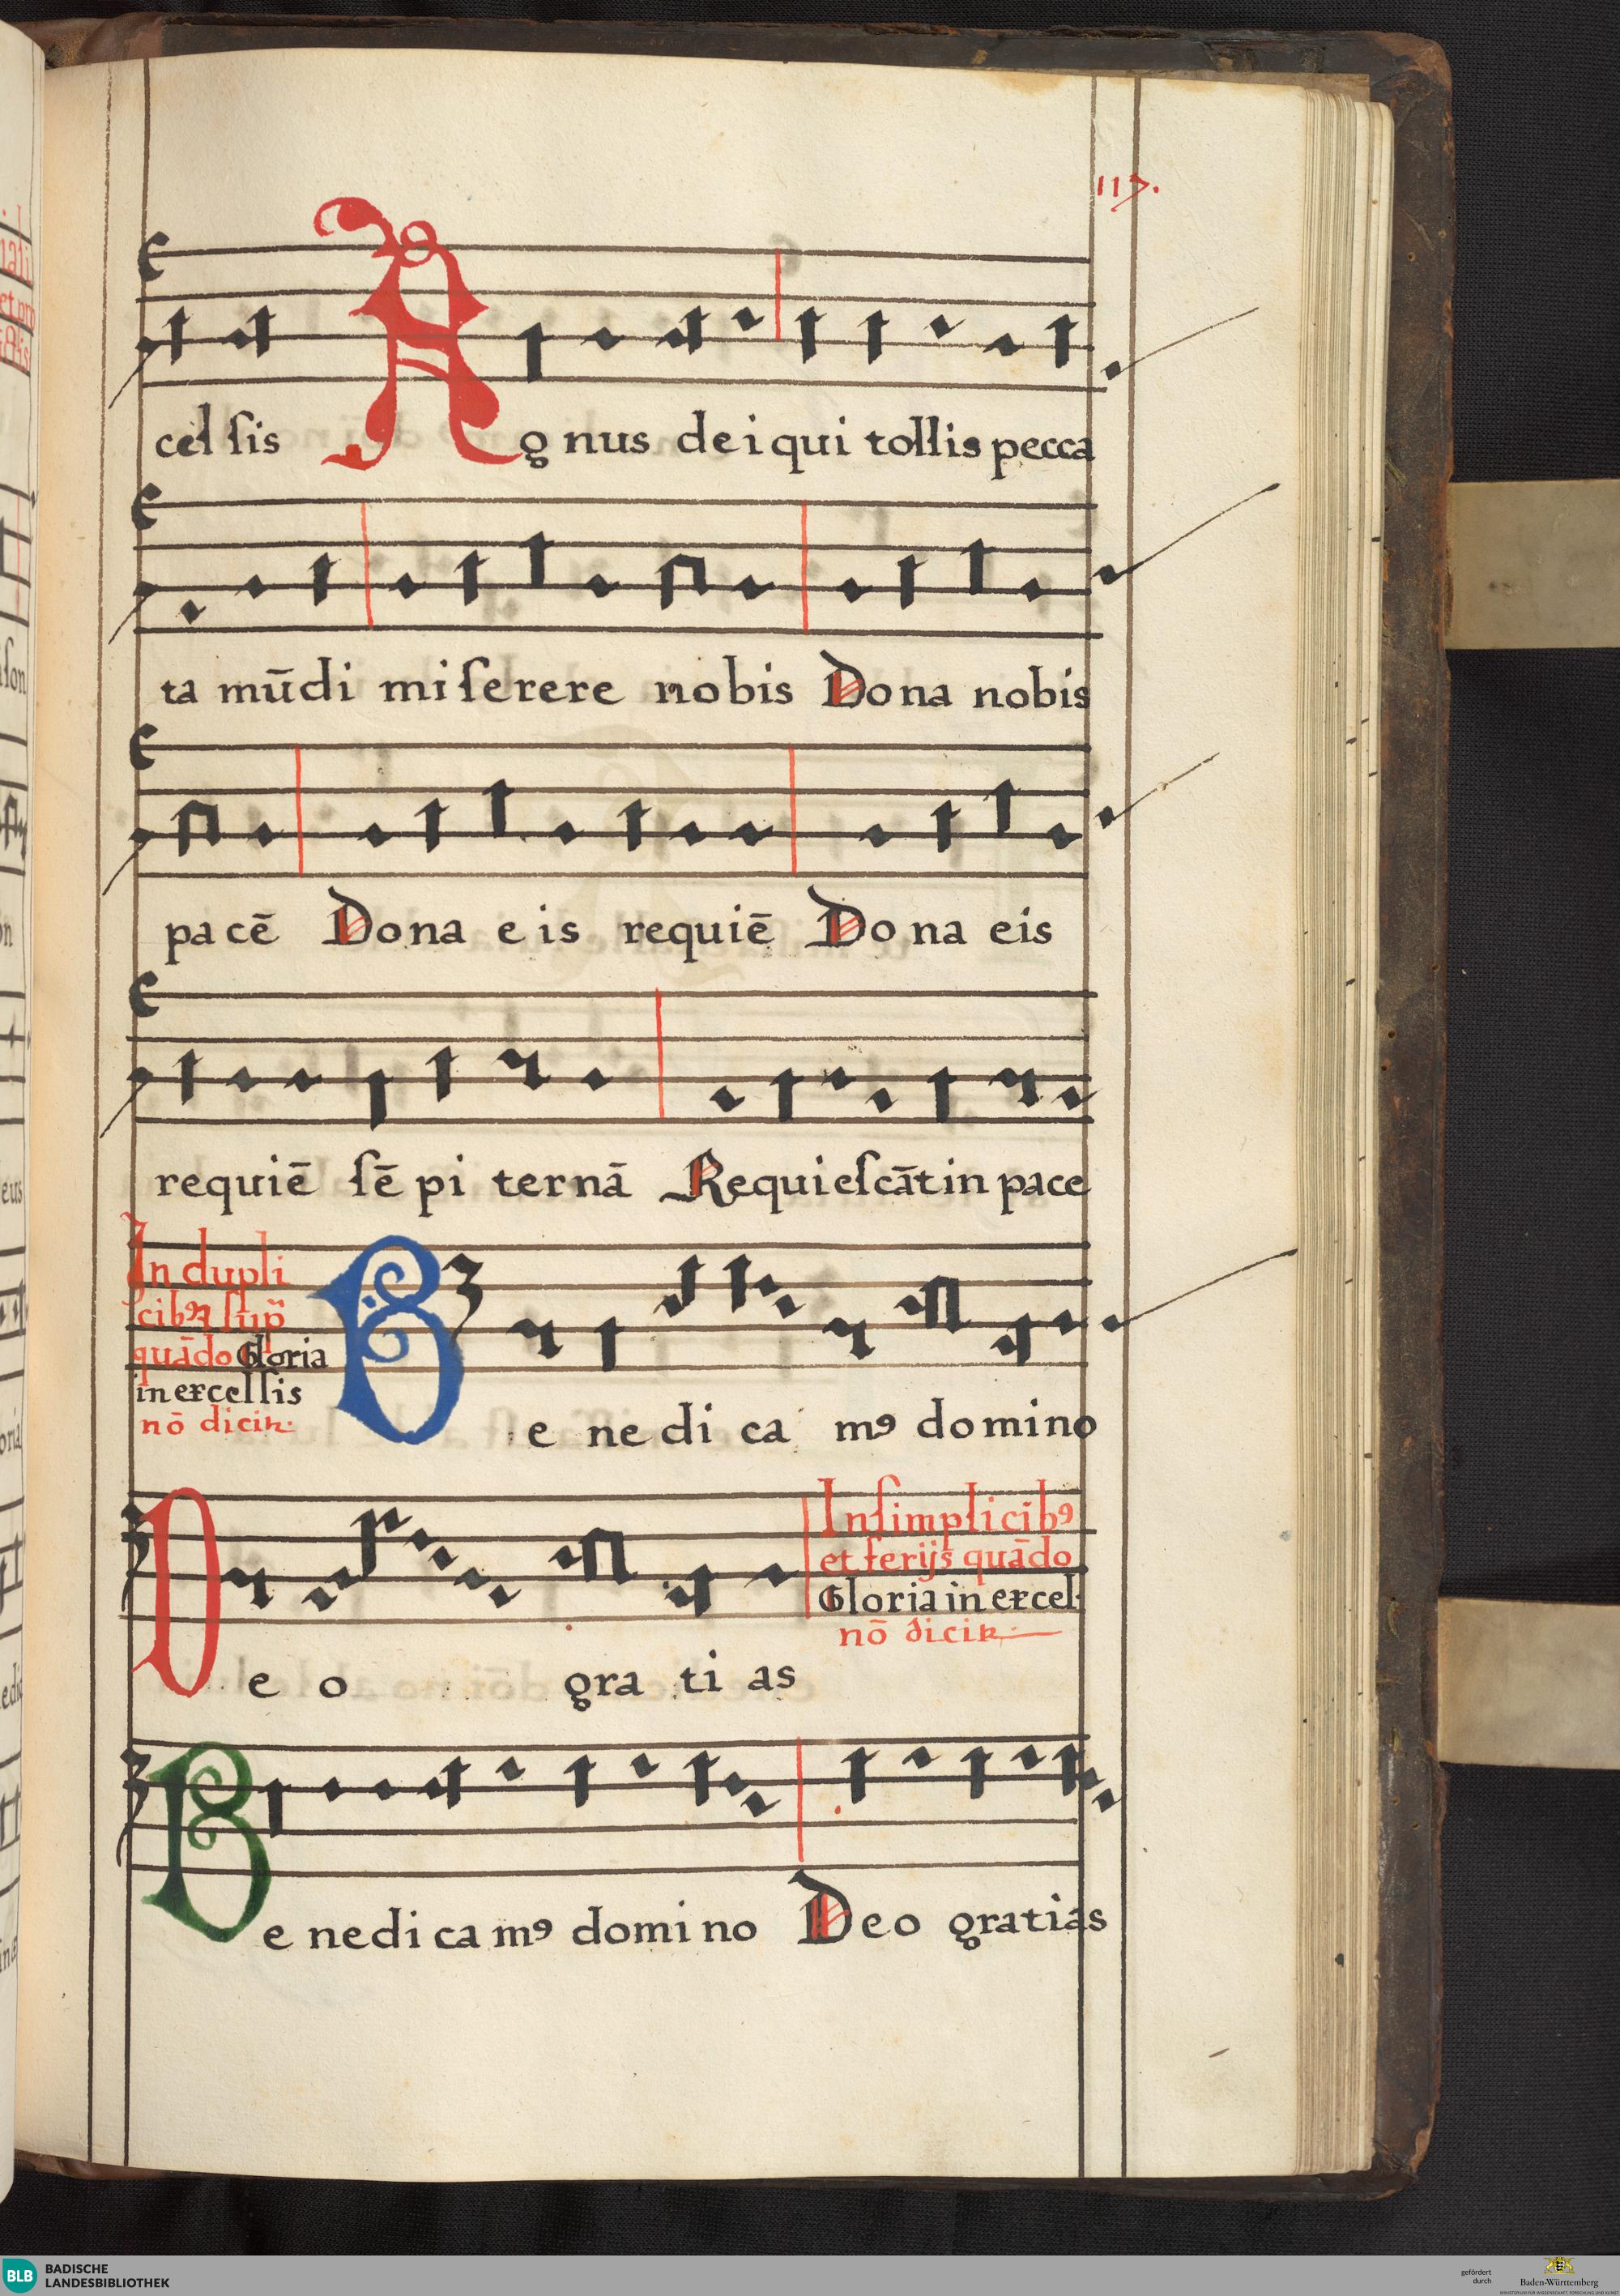 117.
cel ſis Agnus dei qui tollis pecca
ta mūdi miſerere nobis Dona nobis
pacē Dona eis requiē Dona eis
requiē ſē pi ternā Requieſcāt in pace
In dupli
cibꝰ ⁊ ſup̄
quādo Gloria
in excelſis
nō dicit᷑
Benedicamꝰ domino
Deo gratias
In ſimplicibꝰ
et ferijs quādo
Gloria in excel
nō dicit᷑
Benedicamꝰ domino Deo gratias
BLB BADISCHE
LANDESBIBLIOTHEK
gefördert
durch
Baden-Württemberg